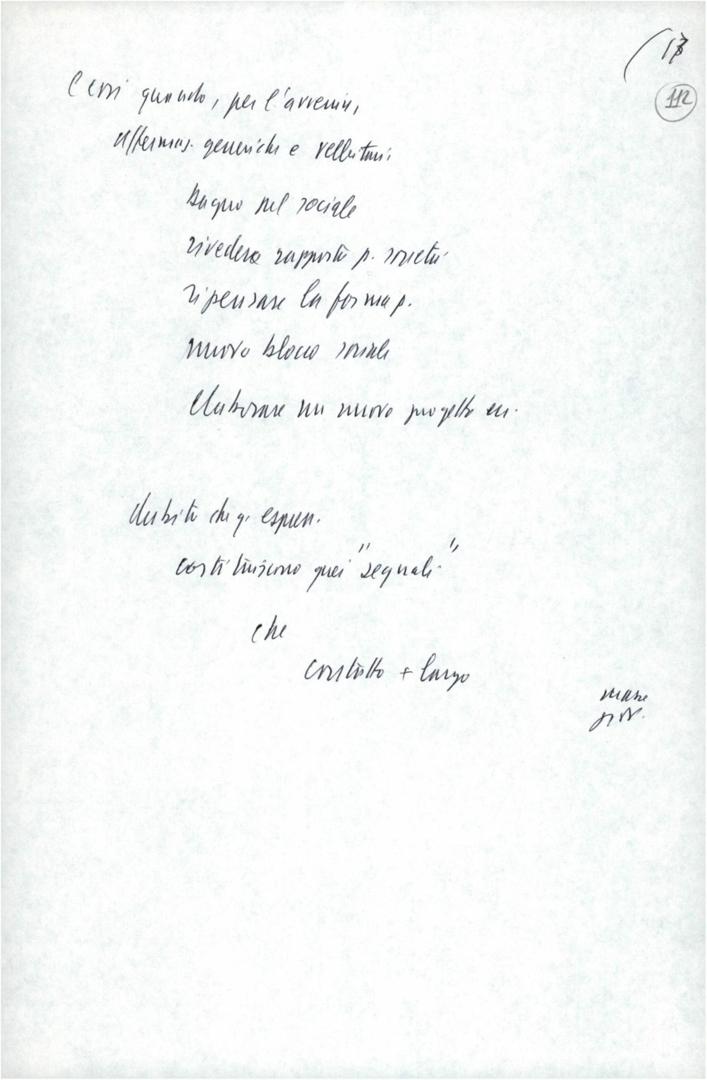 (13
112
E così quando, per l'avvenire,
affermaz. generiche e velleitarie
bagno nel sociale
rivedere rapporti p. società
ripensare la forma p.
nuovo blocco sociale
elaborare un nuovo progetto
dubito che q. espress.
costituiscono quei "segnali"
che
contesto + largo